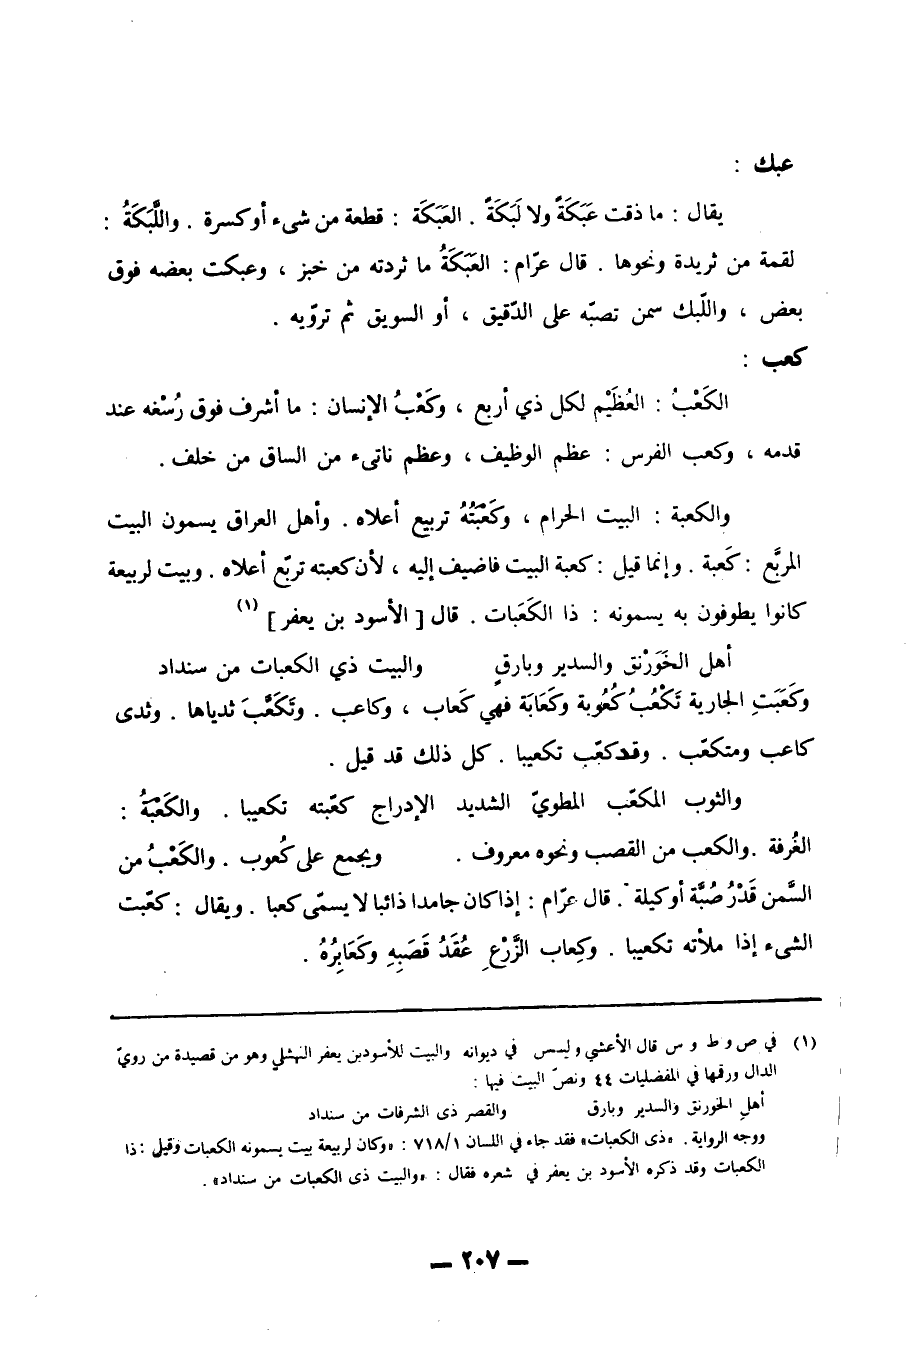 عبك :
يقال : ما ذقت عَبَكَةً ولا لَبَكَةً . العَبَكَة : قطعة من شيء أو كسرة . واللَّبَكَةُ :
لقمة من ثريدة ونحوها . قال عرّام : العَبَكَةُ ما ثردته من خبز ، وعبكت بعضه فوق
بعض ، واللّبك سمن تصبّه على الدّقيق ، أو السويق ثم تروّيه .
كعب :
الكَعْبُ : العُظَيْم لكل ذي أربع ، وكَعْبُ الإنسان : ما أشرف فوق رُسْغه عند
قدمه ، وكعب الفرس : عظم الوظيف ، وعظم ناتىء من الساق من خلف .
والكعبة : البيت الحرام ، وكَعْبَتُهُ تربيع أعلاه . وأهل العراق يسمون البيت
المربَّع : كَعبة . وإنما قيل : كعبة البيت فاضيف إليه ، لأن كعبته تربّع أعلاه . وبيت لربيعة
كانوا يطوفون به يسمونه : ذا الكَعَبات . قال [ الأسود بن يعفر ] (١)
أهل الخَوَرْنق والسدير وبارقٍ والبيت ذي الكعبات من سنداد
وكَعَبَتِ الجارية تَكْعُبُ كُعُوبة وكَعَابَة فهي كَعاب ، وكاعب . وتَكَعَّبَ ثدياها . وثدى
كاعب ومتكعّب . وقد كعّب تكعيبا . كل ذلك قد قيل .
والثوب المكعّب المطويّ الشديد الإدراج كعّبته تكعيبا . والكَعْبَةُ :
الغُرفة . والكعب من القصب ونحوه معروف . ويجمع على كُعوب . والكَعْبُ من
السَّمن قَدْرُ صُبَّة أو كيلة . قال عرّام : إذا كان جامدا ذائبا لا يسمّى كعبا . ويقال : كعّبت
الشيء إذا ملأته تكعيبا . وكِعاب الزَّرْعِ عُقَدُ قَصَبِهِ وكَعَابِرُهُ .
(١) في ص و ط و س قال الأعشي وليس في ديوانه والبيت للأسود بن يعفر النهشلي وهو من قصيدة من رويّ
الدال ورقمها في المفضليات ٤٤ ونصّ البيت فيها :
أهلِ الخورنق والسدير وبارق والقصر ذى الشرفات من سنداد
ووجه الرواية . «ذى الكعبات» فقد جاء في اللسان ٧١٨/١ : «وكان لربيعة بيت يسمونه الكعبات وقيل : ذا
الكعبات وقد ذكره الأسود بن يعفر في شعره فقال : «والبيت ذى الكعبات من سنداد» .
— ٢٠٧ —